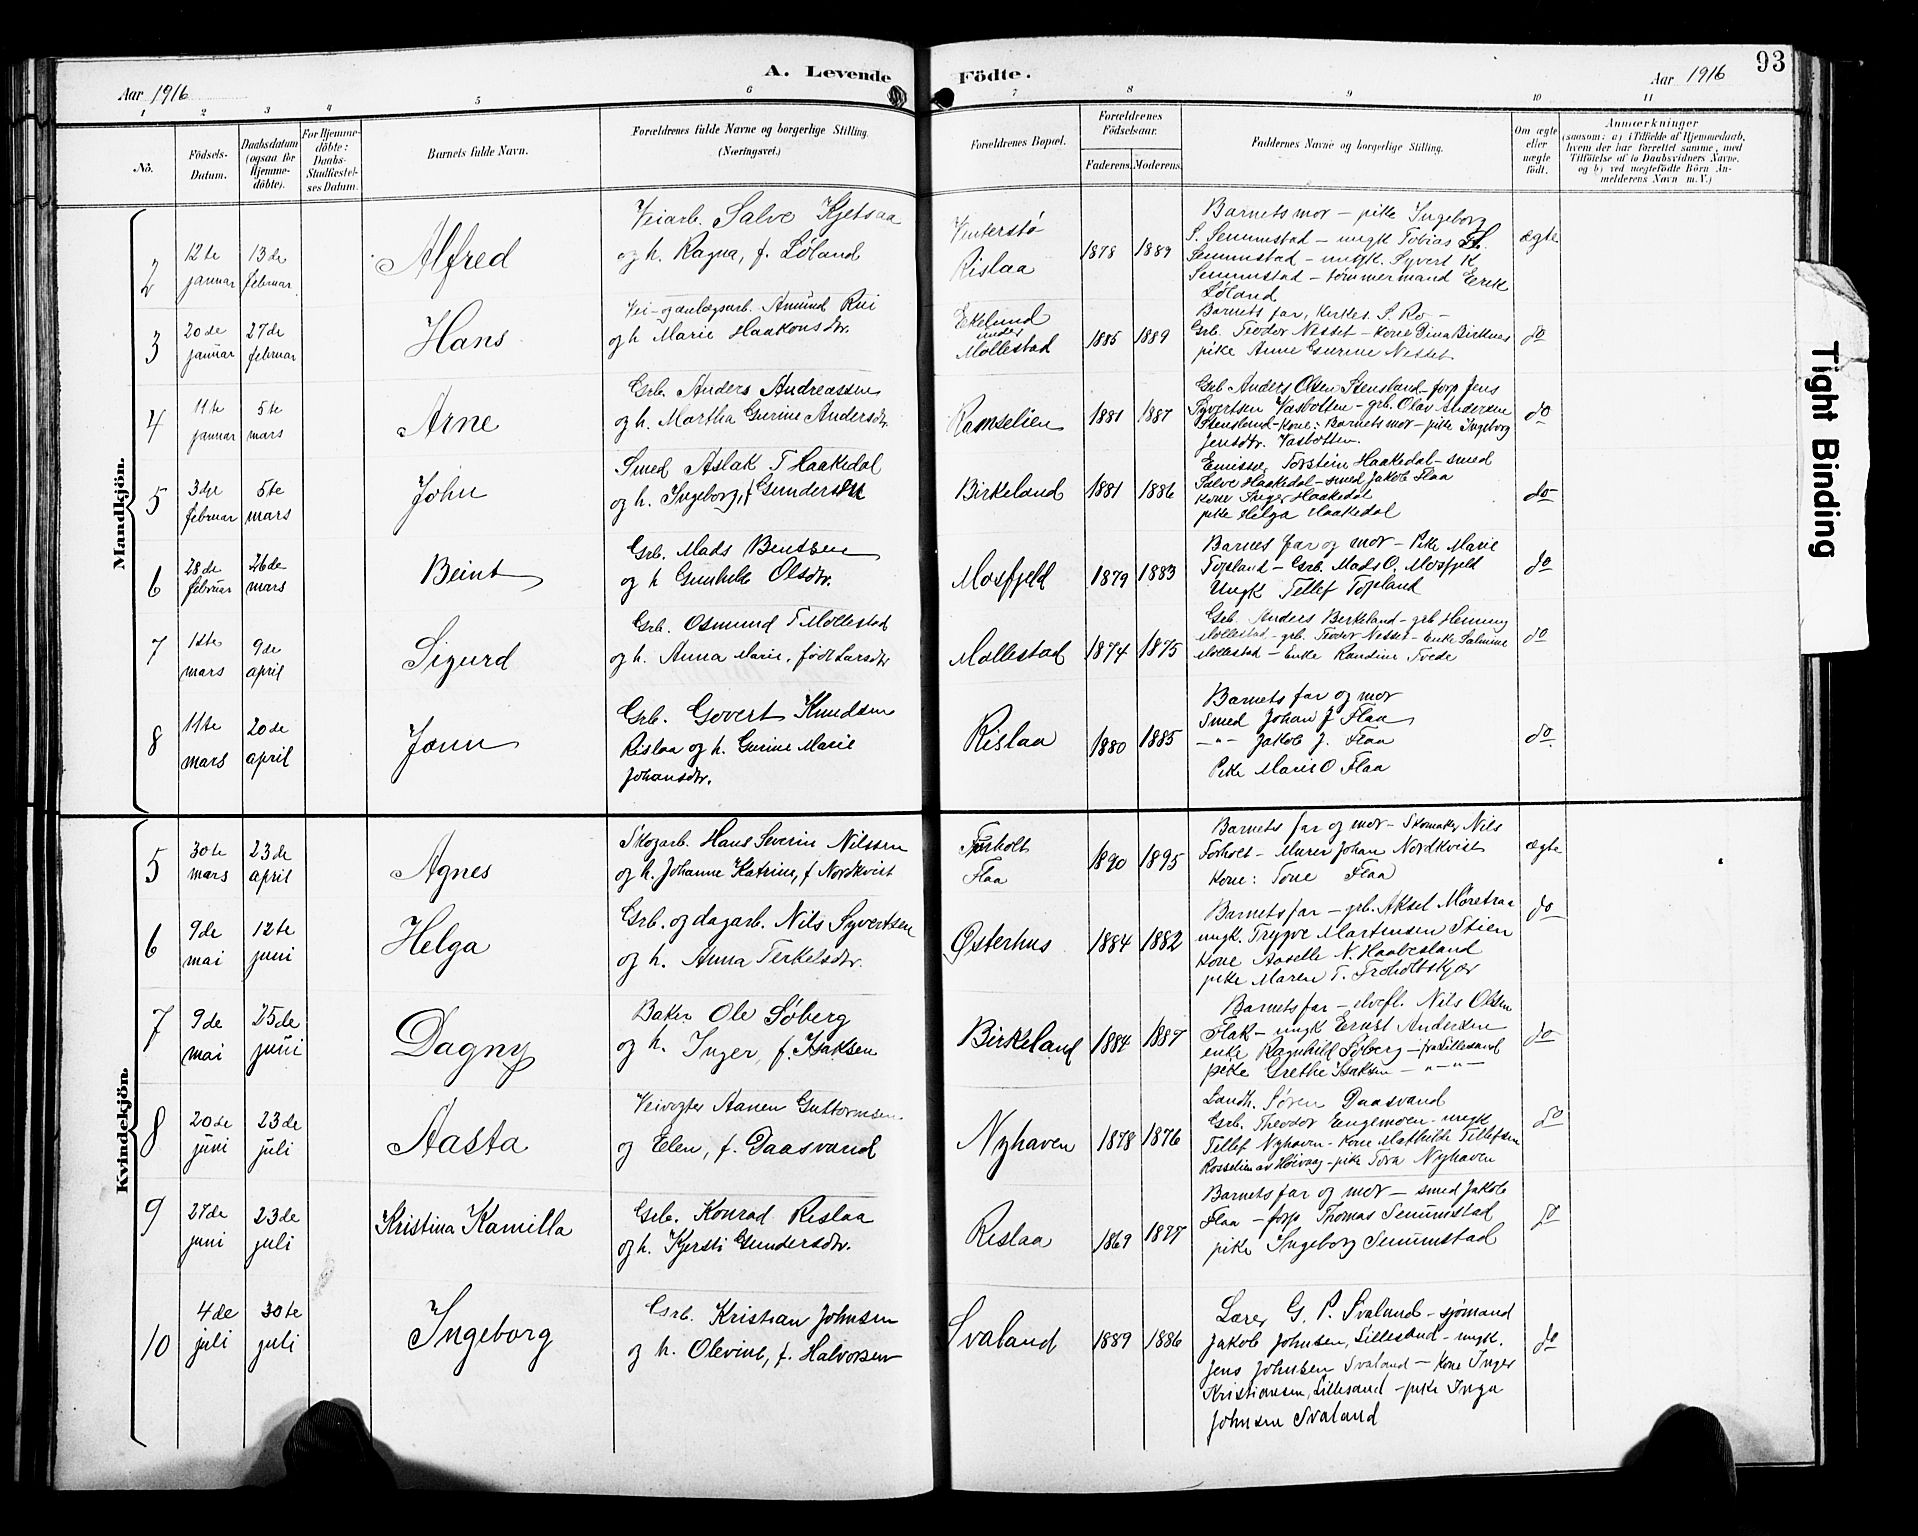 A. Levende Födte.
93
Aar 1916
Aar 1916
1 2 3 4 5 6 7 8 9 10 11
No.
Födsels-Datum.
Daabsdatum (ogsaa for Hjemme-döbte).
For Hjemme-döbte: Daabs-Stadfæstel-ses Datum.
Barnets fulde Navn.
Forældrenes fulde Navne og borgerlige Stilling.
(Næringsvei.)
Forældrenes Bopæl.
Forældrenes Födselsaar.
Faderens. Moderens.
Faddernes Navne og borgerlige Stilling.
Om ægte eller uægte födt.
Anmærkninger
(saasom: a) i Tilfælde af Hjemmedaab, hvem der har forrettet samme, med Tilföielse af to Daabsvidners Navne, og b) ved uægtefödte Börn An-melderens Navn m. V.)
Mandkjön.
2
12te januar
13de februar
Alfred
Veiarb. Salve Kjetsaa
og h. Ragna, f. Løland
Vinterstø
Rislaa
1878 1889
Barnets mor – pike Ingeborg
S. Senumstad – ungk Tobias
Senumstad – ungk. Syvert K
Senumstad – tømmermand Erik
Løland
ægte
3
20de januar
27de februar
Hans
Vei- og anlægsarb. Amund Rui
og h Marie Haakonsdtr.
Ekelund
under
Mollestad
1885 1889
Barnets far, kirkes. S. Ro –
Grb. Teodor Nesset – kone Dina Birknes
pike Anne Gurine Nesset
do
4
11te januar
5te mars
Arne
Grb. Anders Andreassen
og h. Martha Gurine Andersdtr.
Ramselien
1881 1887
Grb Anders Olsen Stensland – forp Jens
Syvertsen Vasbotten – grb. Olav Andersen
Stensland – kone: Barnets mor – pike Ingeborg
Jensdtr. Vasbotten.
do
5
3dje februar
5te mars
John
Smed Aslak T Haakedal
og h. Ingeborg, f Gundersen
Birkeland
1881 1886
Emissær Torstein Haakedal – smed
Salve Haakedal – smed Jakob Flaa
kone Inger Haakedal
pike Helga Haakedal
do
6
28de februar
26de mars
Beint
Grb. Mads Bentsen
og h Gunhild Olsdtr.
Mosfjeld
1879 1883
Barnets far og mor – Pike Marie
Topland – Grb. Mads O. Mosfjeld
Ungk Tellef Topland
do
7
1ste mars
9de april
Sigurd
Grb. Osmund T Mollestad
og h. Anna Marie, født Larsdtr
Mollestad
1874 1875
Grb. Anders Birkeland – grb Henning
Mollestad – grb. Teodor Nesset – Enke Salmine
Mollestad – Enke Randine Tvede
do
8
11te mars
20de april
Jonn
Grb. Govert Knudsen
Rislaa og h. Gurine Marie
Johansdtr.
Rislaa
1880 1885
Barnets far og mor
Smed Johan J Flaa
–"– Jakob J. Flaa
Pike Marie O Flaa
do.
Kvindekjön.
5
30te mars
23de april
Agnes
Skogarb. Hans Severin Nilssen
og h. Johanne Katrine, f Nordkvist
Forholt
Flaa
1890 1895
Barnets far og mor – Skomaker Nils
Forholt – Murer Johan Nordkvist
Kone: Tone Flaa
ægte
6
9de mai
12te juni
Helga
Grb. og dagarb. Nils Syvertsen
og h. Anna Terkelsdtr.
Østerhus
1884 1882
Barnets far – grb. Aksel Møretraa
ungk. Trygve Martinsen Stien
Kone Aaselle N. Haabesland
pike Maren T. Froholtskjær
do
7
9de mai
25de juni
Dagny
Baker Ole Søberg
og h. Inger, f. Isaksen
Birkeland
1884 1887
Barnets far – elvefl. Nils Olsen
Flak – ungk Ernst Andersen
enke Ragnhild Søberg – fra Lillesand
pike Grethe Isaksen – " – " –
do
8
20de juni
23de juli
Aasta
Veivogter Aanen Guttormsen
og Elen, f. Daasvand
Nyhaven
1878 1876
Landh. Søren Daasvand
Grb. Theodor Engemoen – ungk
Tellef Nyhaven – Kone Mathilde Tellefsen
Rosselien av Høivaag – pike Tora Nyhaven
do
9
27de juni
23de juli
Kristina Kamilla
Grb. Konrad Rislaa
og h. Kjersti Gundersdtr.
Rislaa
1869 1877
Barnets far og mor – smed Jakob
Flaa – forp Thomas Senumstad
pike Ingeborg Senumstad
do
10
4de juli
30te juli
Ingeborg
Grb. Kristian Johnsen
og h. Olevine, f. Halvorsen
Svaland
1889 1886
Lærer G. P. Svaland – sjømand
Jakob Johnsen, Lillesand – ungk.
Jens Johnsen Svaland – Kone Inger
Kristiansen, Lillesand – pike Inga
Johnsen Svaland
do
Tight Binding